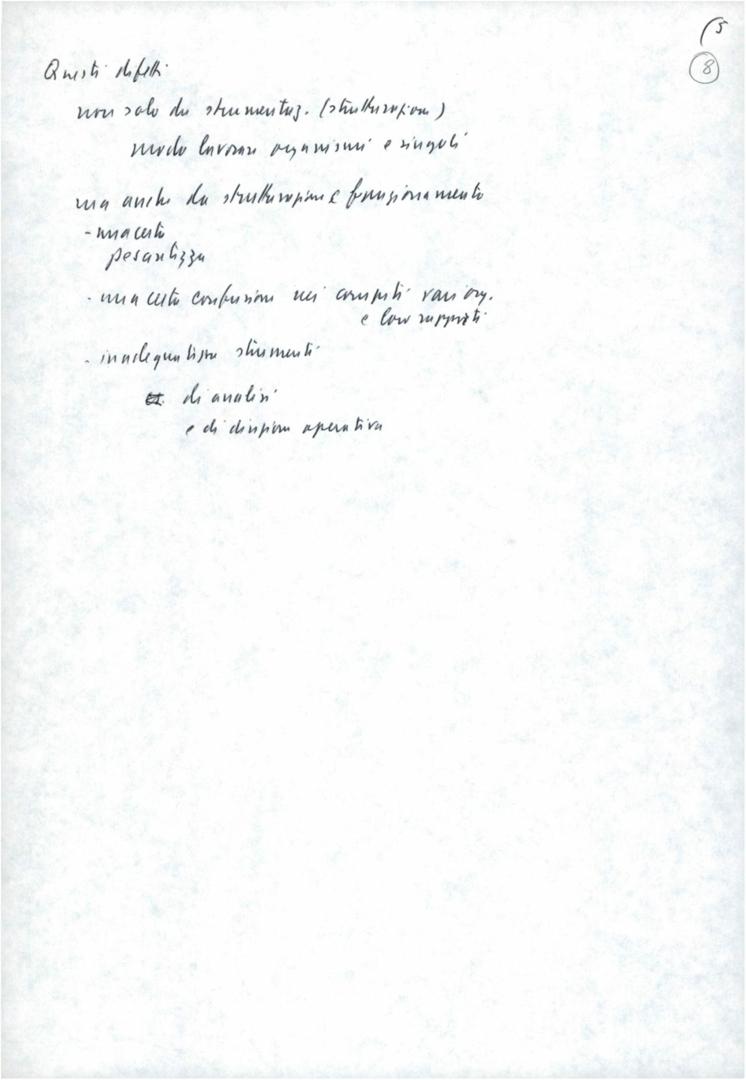 5
8
Questi difetti
non solo da strumentaz. (strutturazione)
modo lavorare organismi e singoli
ma anche da strutturazione e funzionamento
- una certa
pesantezza
- una certa confusione nei compiti vari org.
e loro rapporti
- inadeguatezza strumenti
di analisi
e di direzione operativa